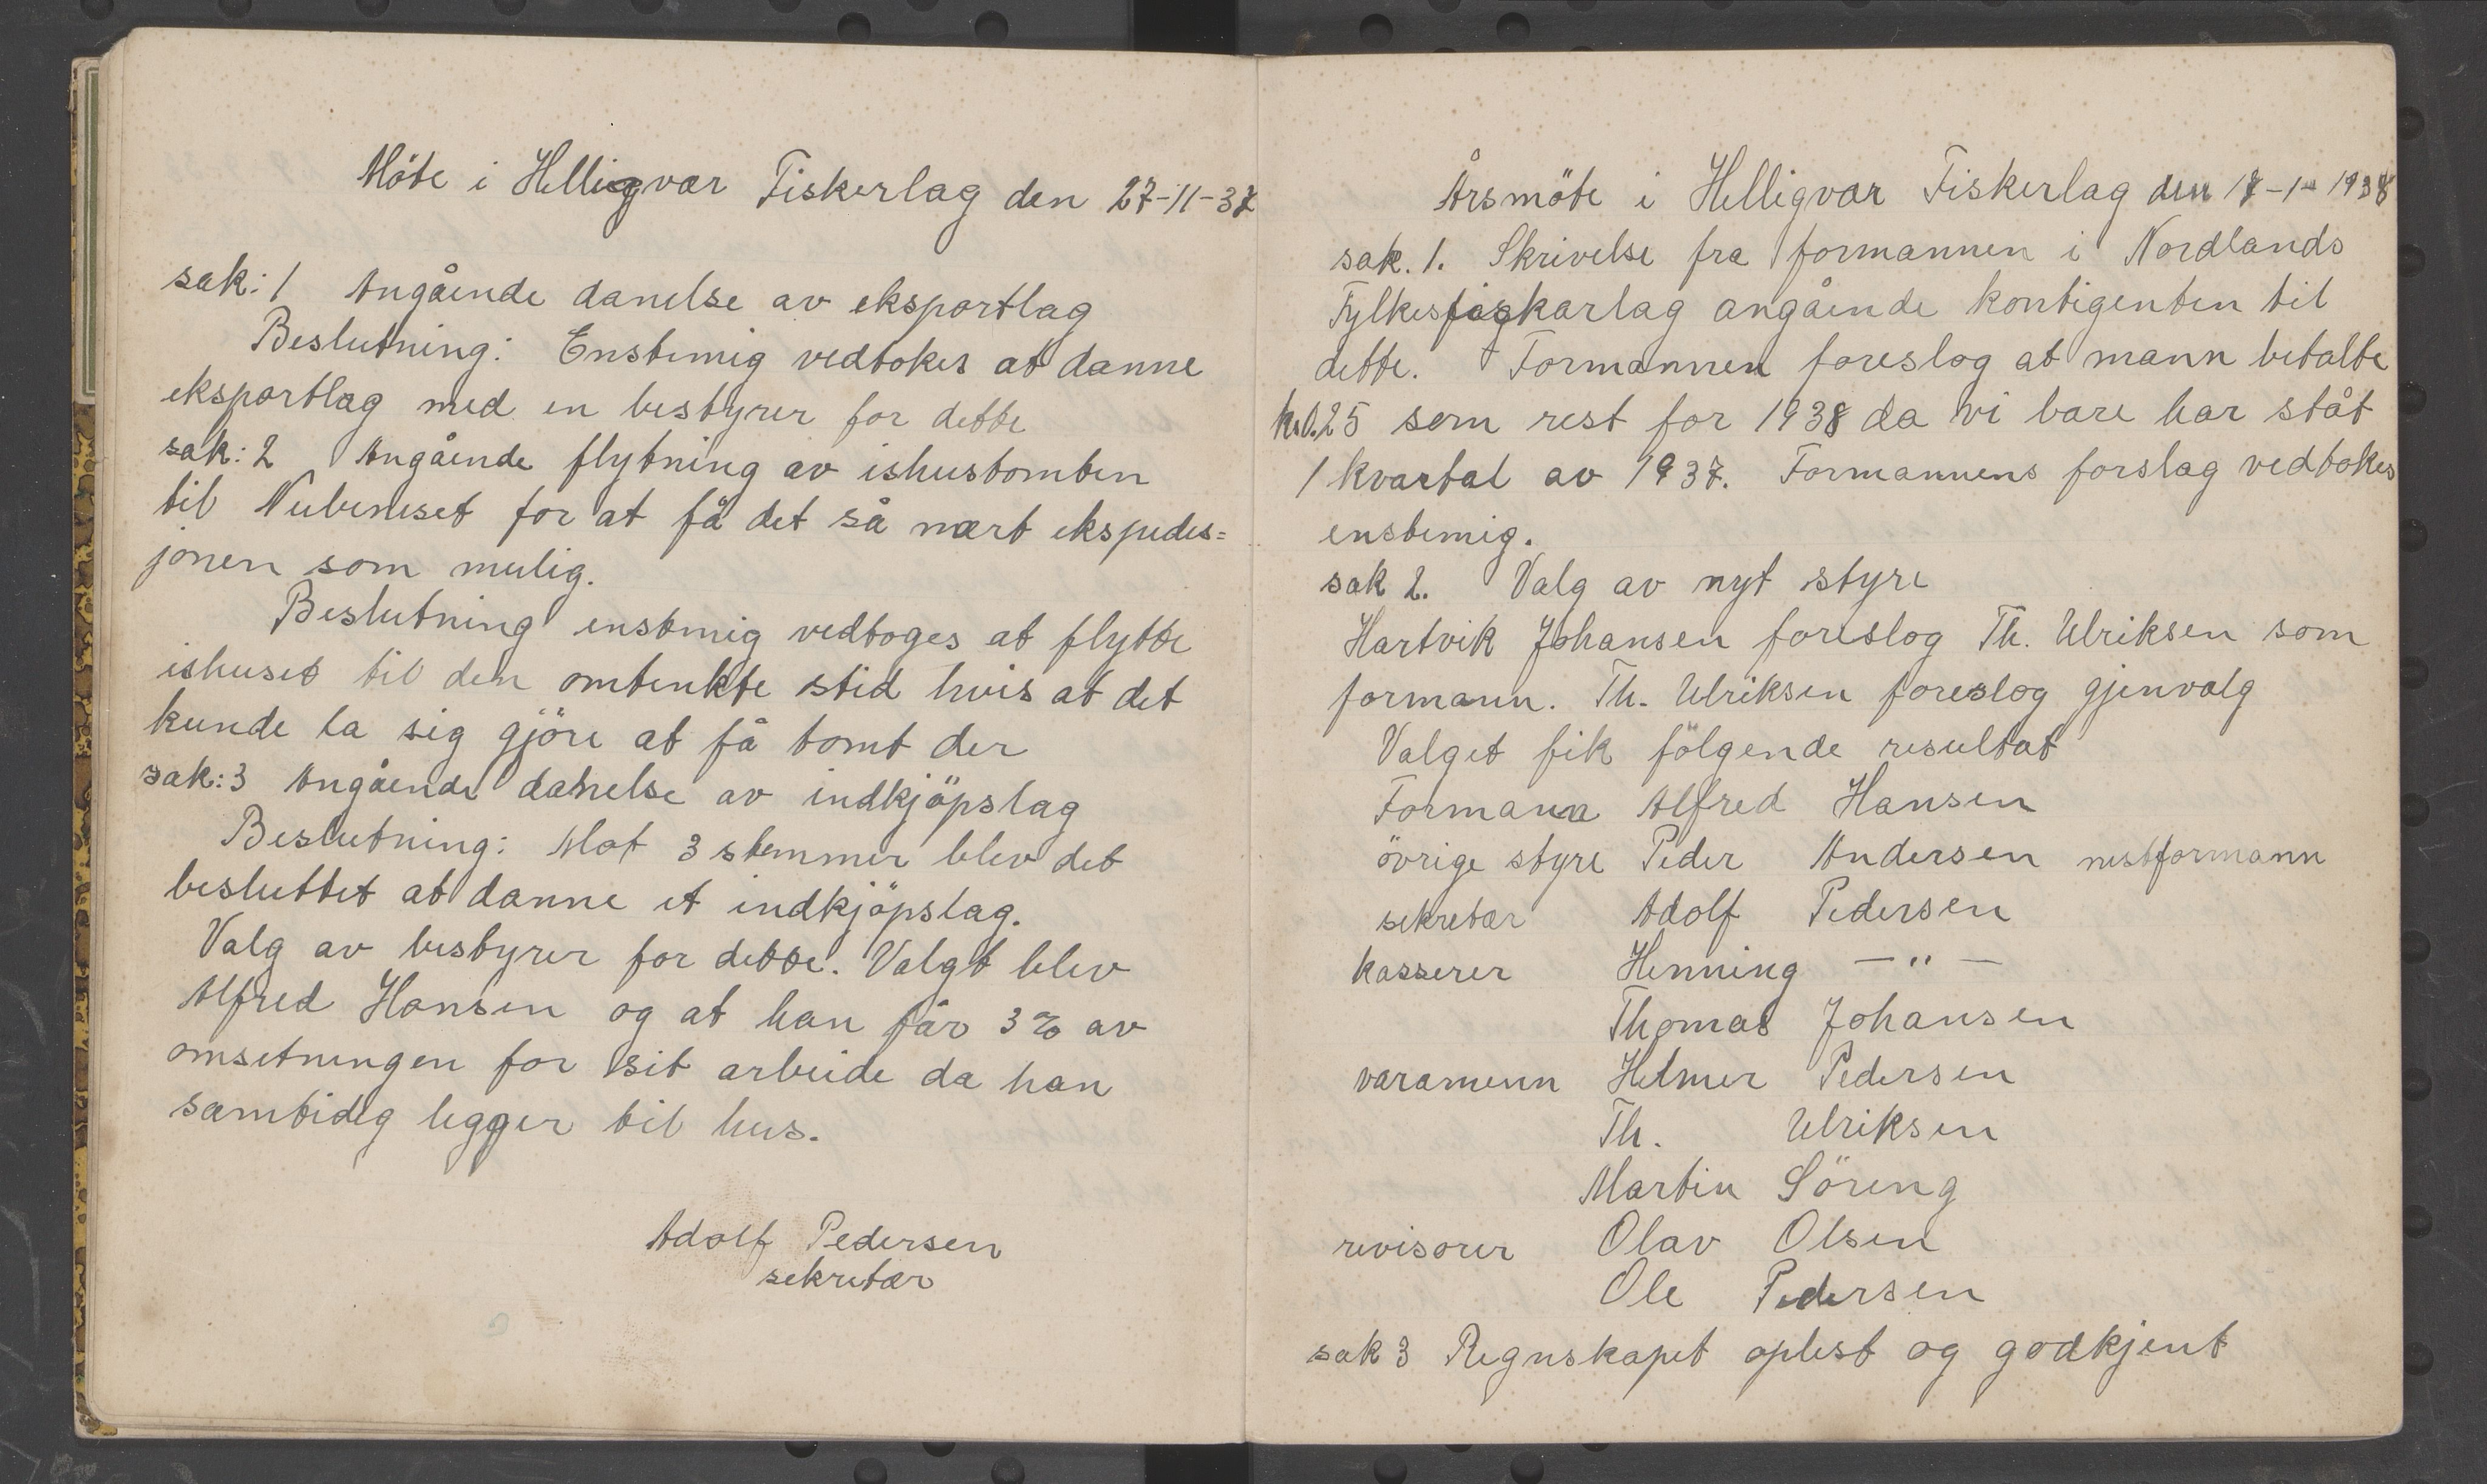 Möte i Helligvær Fiskerlag den 27-11-37
sak: 1 Angående danelse av eksportlag
Beslutning: Enstemig vedtokes at danne
eksportlag med en bestyrer for dette
sak: 2 Angående flytning av ishustomten
til for at få det så nært ekspedis=
jonen som mulig.
Beslutning enstmig vedtoges at flytte
ishuset til den omtenkte stid hvis at det
kunde la sig gjöre at få tomt der
sak: 3 Angående danelse av indkjöpslag
Beslutning: Mot 3 stemmer blev det
besluttet at danne et indkjöpslag.
Valg av bestyrer for dette. Valgt blev
Alfred Hansen og at han får 3% av
omsetningen for sit arbeide da han
samtidig legger til hus.
Adolf Pedersen
sekretær
Årsmöte i Helligvær Fiskerlag den -1- 1938
sak. 1. Skrivelse fra formannen i Nordlands
Fylkesfiskarlag angående kontigenten til
dette. Formannen foreslog at mann betalte
kr0.25 som rest for 1938 da vi bare har ståt
1 kvartal av 1937. Formannens forslag vedtokes
enstemig.
sak 2. Valg av nyt styre
Hartvik Johansen foreslog Th. Ulriksen som
formann. Th. Ulriksen foreslog gjenvalg
Valget fik fölgende resultat
Formann Alfred Hansen
övrige styre Peder Andersen nestformann
sekretær Adolf Pedersen
kasserer Henning — " —
Thomas Johansen
varamenn Helmer Pedersen
Th. Ulriksen
Martin Söreng
revisorer Olav Olsen
Ole Pedersen
sak 3 Regnskapet oplest og godkjent